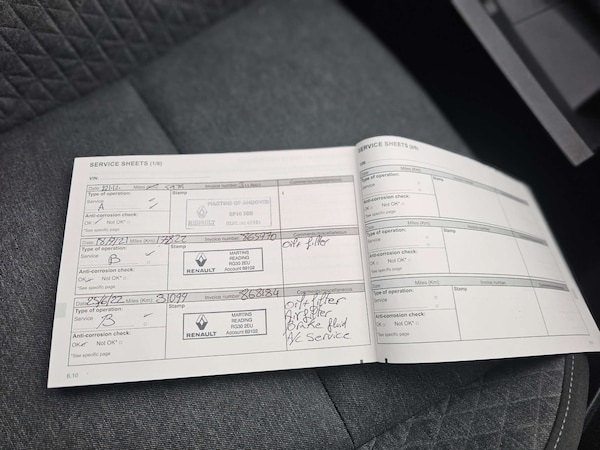 SERVICE SHEETS (1/6)
VIN
Date Miles (Km) Invoice number Comments/miscellaneous
Type of operation: Stamp
Service
A
Anti-corrosion check:
OK Not OK*
*See specific page
Date Miles (Km) 17822 Invoice number 865770 Comments/miscellaneous
Type of operation: Stamp Oil+ filter
Service
B
RENAULT
MARTINS
READING
RG30 2EU
Account 69102
Anti-corrosion check:
OK Not OK*
*See specific page
Date 25/6/22 Miles (Km) 31099 Invoice number 868184 Comments/miscellaneous
Type of operation: Stamp
Service
B
RENAULT
MARTINS
READING
RG30 2EU
Account 69102
Oil+filter
Air filter
Brake fluid
A/C Service
Anti-corrosion check:
OK Not OK*
*See specific page
6.10
SERVICE SHEETS
VIN
Date Miles (Km) Invoice number
Type of operation: Stamp
Service
Anti-corrosion check:
OK Not OK*
*See specific page
Date Miles (Km)
Type of operation: Stamp
Service
Anti-corrosion check:
OK Not OK*
*See specific page
Date Miles (Km) Invoice number
Type of operation: Stamp
Service
Anti-corrosion check:
OK Not OK*
*See specific page